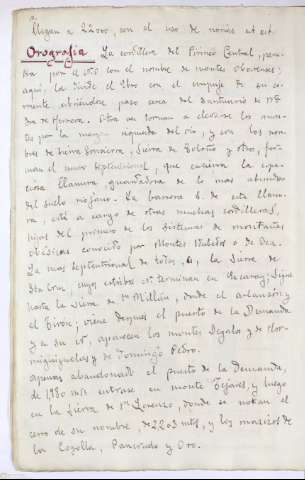 llegan a 22000, con el uso de norias et cet.
Orografía La cordillera del Pirineo Central, pene-
tra por el N.O con el nombre de montes obarenes;
aquí, la hiende el Ebro con el empuje de su co-
rriente abriéndose paso cerca del Santuario de Nª
Sra de Herrera. Otra vez tornan a elevarse los mon-
tes por la margen izquierda del río, y con los nom-
bres de Sierra Sonsierra, Sierra de Toloño y otros, for-
man el muro septentrional, que encierra la espa-
ciosa llanura guardadora de lo más abundoso
del suelo riojano. La barrera S. de esta llanu-
ra, está a cargo de otras muchas cordilleras,
hijas del primero de los sistemas de montañas
ibéricas conocido por Montes Idubedos o de Oca.
La más septentrional de todas, es, la Sierra de
Sta Cruz, cuyos estribos st. terminan en Ezcaray; sigue
hasta la Sierra de Sn Millán, donde el Arlanzón y
el Tirón; viene después el puerto de la Demanda
y a su st, aparecen los montes Degalo y de Hor-
miguiguelas y de Domingo Pedro.
apenas abandonado el puerto de la Demanda,
de 1980 mts entrase en monte Tejares, y luego
en la Sierra de Sn Lorenzo, donde se notan el
cerro de su nombre, de 2303 mts, y los macizos de
la Cogolla, Pancrudo y Oro.